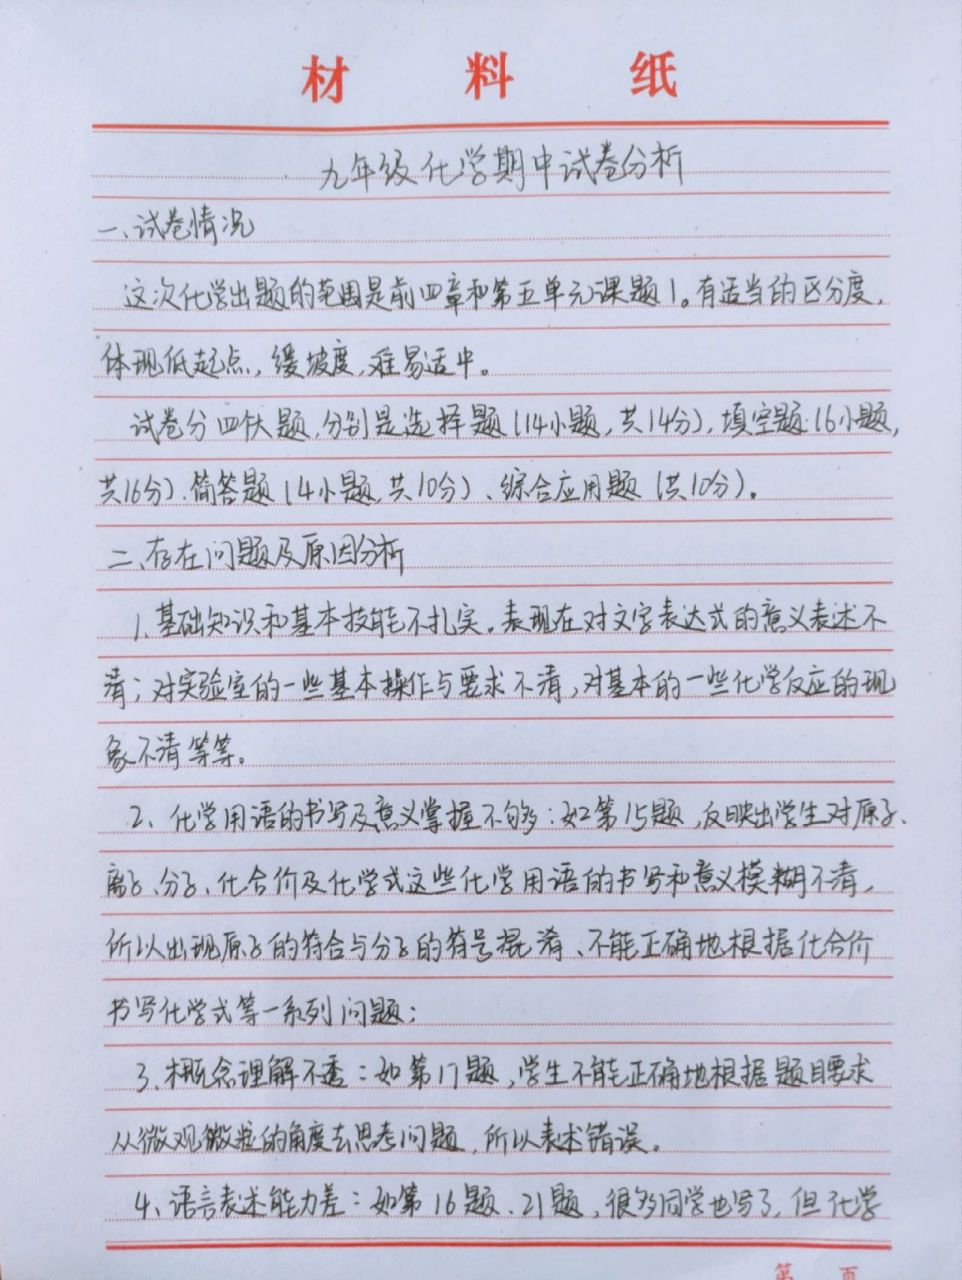 材料纸
九年级化学期中试卷分析
一、试卷情况
这次化学出题的范围是前四章和第五单元课题1。有适当的区分度，
体现低起点，缓坡度，难易适中。
试卷分四个大题，分别是选择题（14小题，共14分），填空题（6小题，
共16分）、简答题（4小题，共10分）、综合应用题（共10分）。
二、存在问题及原因分析
1、基础知识和基本技能不扎实。表现在对文字表达式的意义表述不
清；对实验室的一些基本操作与要求不清，对基本的一些化学反应的现
象不清等等。
2、化学用语的书写及意义掌握不够：如第15题，反映出学生对原子、
离子、分子、化合价及化学式这些化学用语的书写和意义模糊不清，
所以出现原子的符合与分子的符号混淆、不能正确地根据化合价
书写化学式等一系列问题；
3、概念理解不透：如第17题，学生不能正确地根据题目要求
从微观微粒的角度去思考问题，所以表术错误。
4、语言表术能力差：如第16题、21题，很多同学也写了，但化学
第 页